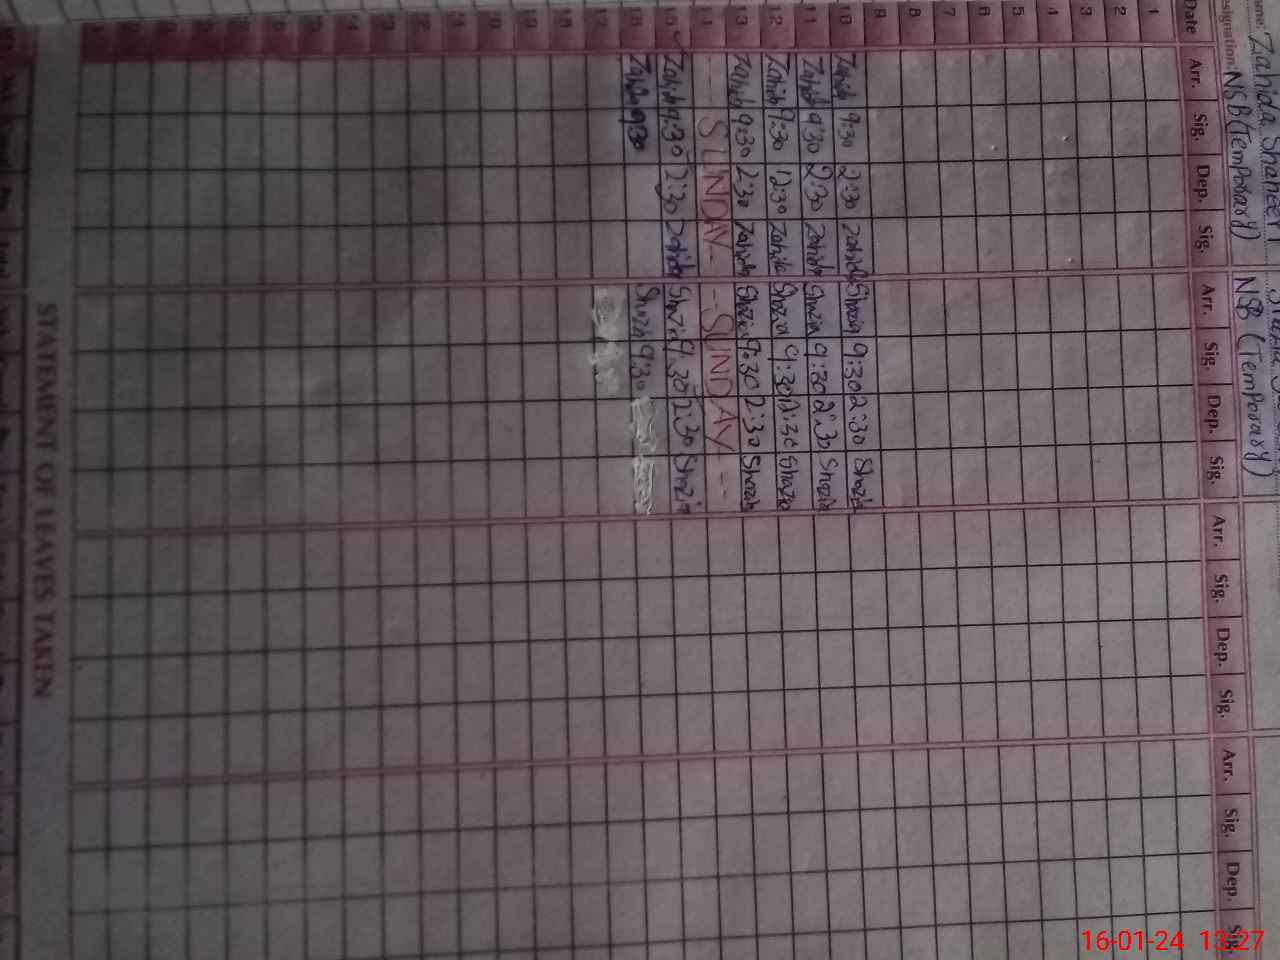 Name: Zahida Shaheen
Designation: NSB (Temporary) NSB (Temporary)
Date Arr. Sig. Dep. Sig. Arr. Sig. Dep. Sig. Arr. Sig. Dep. Sig. Arr. Sig. Dep. Sig.
1
2
3
4
5
6
7
8
9
10 Zahida 9:30 2:30 Zahida Shazia 9:30 2:30 Shazia
11 Zahida 9:30 2:30 Zahida Shazia 9:30 2:30 Shazia
12 Zahida 9:30 12:30 Zahida Shazia 9:30 12:30 Shazia
13 Zahida 9:30 2:30 Zahida Shazia 9:30 2:30 Shazia
14 --- SUNDAY - -- SUNDAY ---
15 Zahida 9:30 2:30 Zahida Shazia 9:30 2:30 Shazia
16 Zahida 9:30 Shazia 9:30
17
18
19
20
21
22
23
24
STATEMENT OF LEAVES TAKEN
16-01-24 13:27